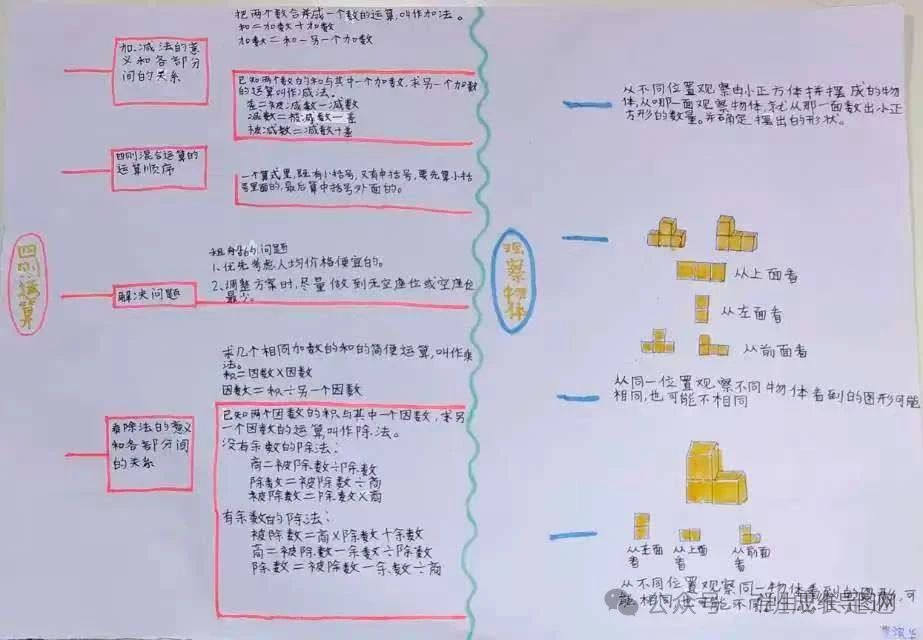 四则运算
加、减法的意
义和各部分
间的关系
把两个数合并成一个数的运算,叫作加法。
和=加数+加数
加数=和-另一个加数
已知两个数的和与其中一个加数,求另一个加数
的运算叫作减法。
差=被减数-减数
减数=被减数-差
被减数=减数+差
四则混合运算的
运算顺序
一个算式里,既有小括号,又有中括号,要先算小括
号里面的,最后算中括号外面的。
解决问题
租船的问题
1.优先考虑人均价格便宜的。
2.调整方案时,尽量做到无空座位或空座位
最少。
乘除法的意义
和各部分间
的关系
求几个相同加数的和的简便运算,叫作乘
法。
积=因数×因数
因数=积÷另一个因数
已知两个因数的积与其中一个因数,求另
一个因数的运算叫作除法。
没有余数的除法:
商=被除数÷除数
除数=被除数÷商
被除数=除数×商
有余数的除法:
被除数=商×除数+余数
商=被除数-余数÷除数
除数=被除数-余数÷商
观察物体
从不同位置观察由小正方体拼摆成的物
体,从哪一面观察物体,就从那一面数出小正
方形的数量。并确定摆出的形状。
从上面者
从左面者
从前面者
从同一位置观察不同物体看到的图形可能
相同,也可能不相同
从左面
者
从上面
者
从前面
者
从不同位置观察同一物体看到的图形,可
能相同
公众号